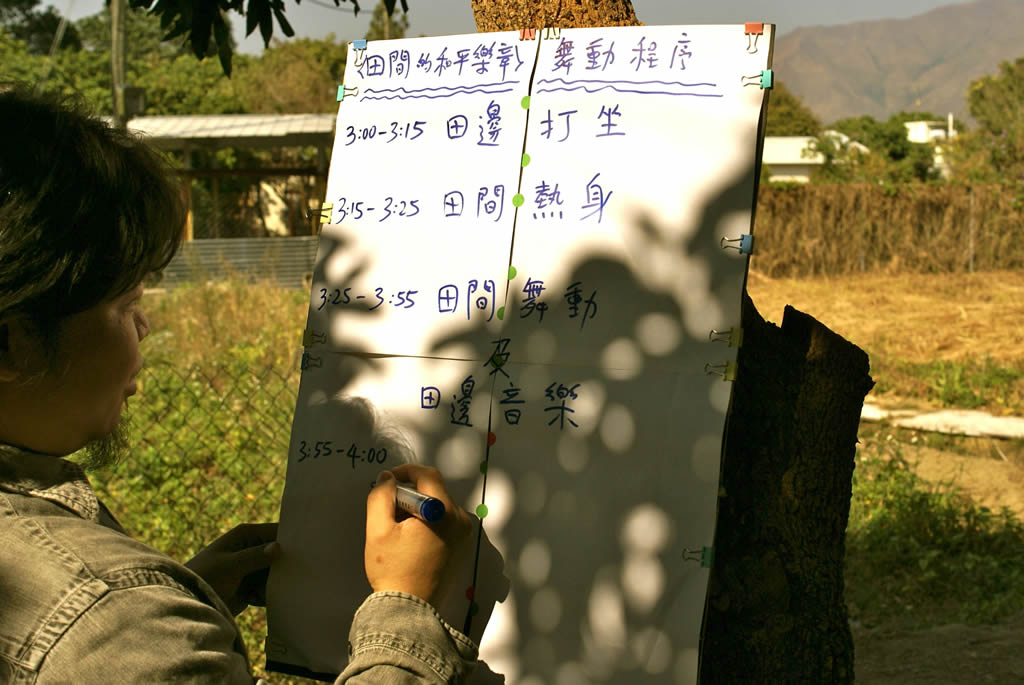 《田間的和平樂章》舞動程序
3:00-3:15 田邊 打坐
3:15-3:25 田間 熱身
3:25-3:55 田間 舞動
及
田邊音樂
3:55-4:00